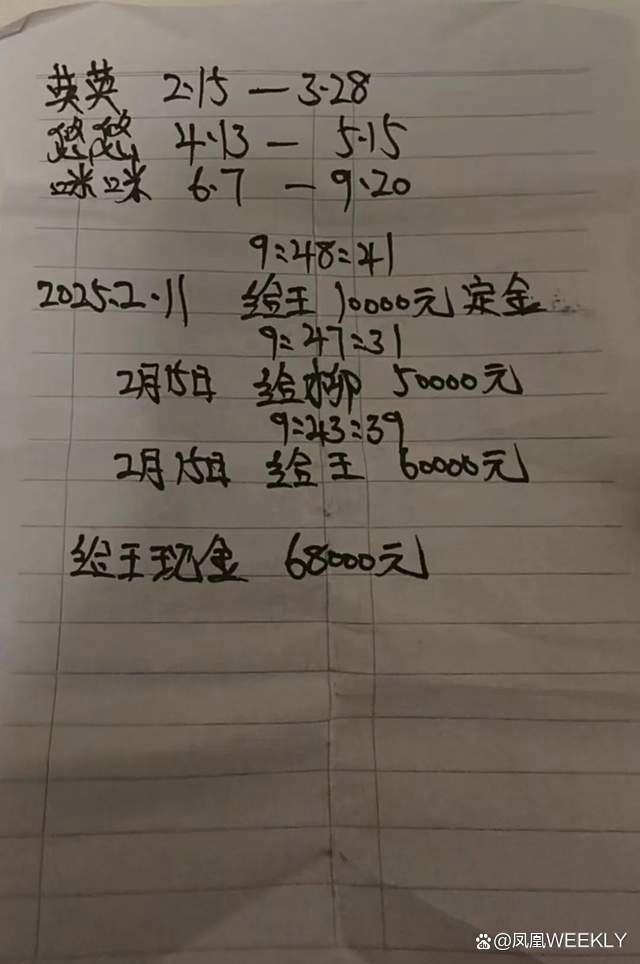 英英 2.15 — 3.28
悠悠 4.13 — 5.15
咪咪 6.7 — 9.20
9:48:41
2025.2.11 给王10000元定金
9:47:31
2月15日 给柳 50000元
9:43:39
2月15日 给王 60000元
给王现金 68000元
@凤凰WEEKLY